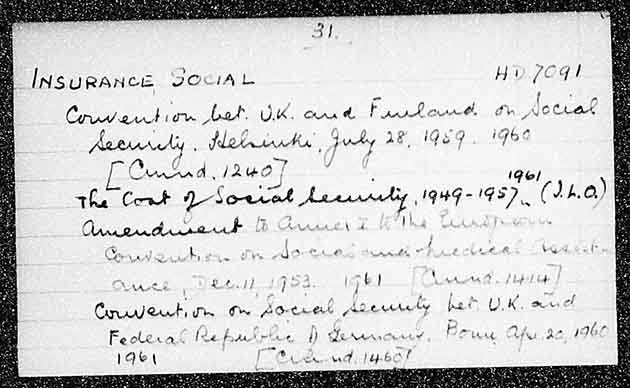 31.
INSURANCE, SOCIAL HD 7091
Convention bet. U.K. and Finland on Social
Security. Helsinki, July 28, 1959. 1960
[Cmnd. 1240]
The Cost of Social Security, 1949-1957, 1961 (I.L.O.)
Amendment to Annex I to the European
Convention on Social and Medical Assist-
ance, Dec. 11, 1953. 1961 [Cmnd. 1414]
Convention on Social Security bet. U.K. and
Federal Republic of Germany. Bonn, Apr. 20, 1960
1961 [Cmnd. 1460]